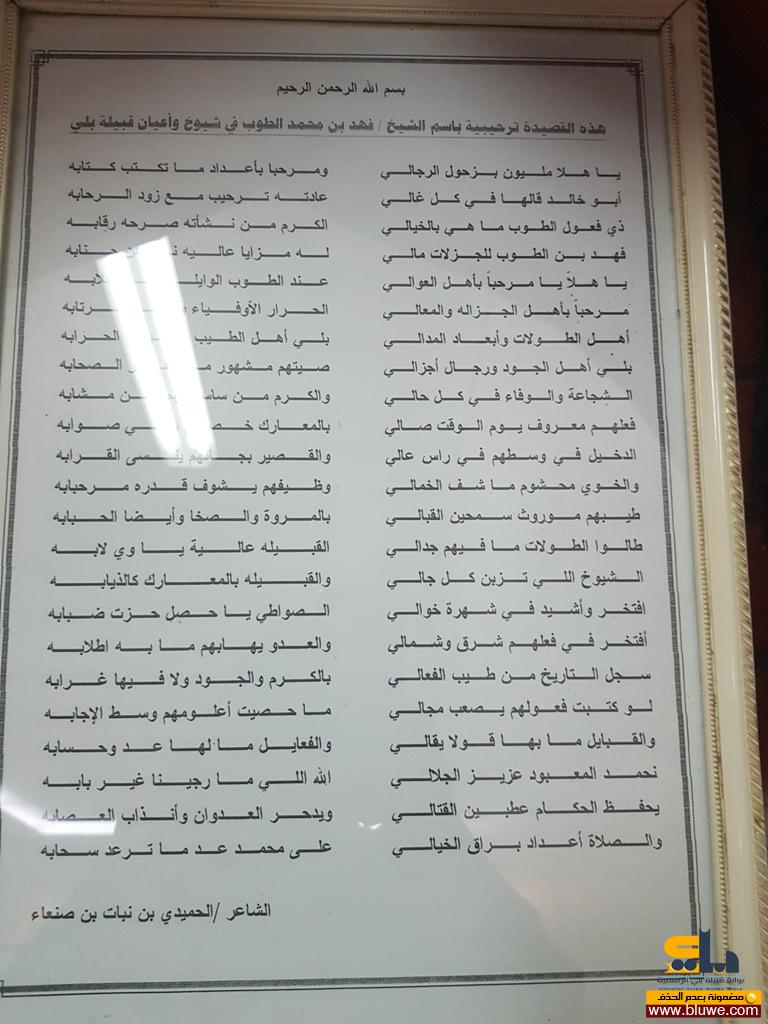 بسم الله الرحمن الرحيم
هذه القصيدة ترحيبية باسم الشيخ / فهد بن محمد الطوب في شيوخ وأعيان قبيلة بلي
يا هلا مليون بزحول الرجالي ومرحبا بأعداد ما تكتب كتابه
أبو خالد قالها في كل غالي عادته ترحيب مع زود الرحابه
ذي فعول الطوب ما هي بالخيالي الكرم من نشأته صرحه رقابه
فهد بن الطوب للجزلات مالي له مزايا عاليه
يا هلاً يا مرحباً بأهل العوالي عند الطوب
مرحباً بأهل الجزاله والمعالي الحرار الأوفياء
أهل الطولات وأبعاد المدالي بلي أهل الطيب الحرابه
بلي أهل الجود ورجال أجزالي صيتهم مشهور الصحابه
الشجاعة والوفاء في كل حالي والكرم من مشابه
فعلهم معروف يوم الوقت صالي بالمعارك صوابه
الدخيل في وسطهم في راس عالي والقصير القرابه
والخوي محشوم ما شف الخمالي وظيفهم يشوف قدره مرحبابه
طيبهم موروث سمحين القبالي بالمروة والصخا وأيضا الحبابه
طالوا الطولات ما فيهم جدالي القبيله عالية يا وي لابه
الشيوخ اللي تزبن كل جالي والقبيله بالمعارك كالذيابه
افتخر وأشيد في شهرة خوالي الصواطي يا حصل حزت ضبابه
أفتخر في فعلهم شرق وشمالي والعدو يهابهم ما به اطلابه
سجل التاريخ من طيب الفعالي بالكرم والجود ولا فيها غرابه
لو كتبت فعولهم يصعب مجالي ما حصيت أعلومهم وسط الإجابه
والقبايل ما بها قولا يقالي والفعايل ما لها عد وحسابه
نحمد المعبود عزيز الجلالي الله اللي ما رجينا غير بابه
يحفظ الحكام عطبين القتالي ويدحر العدوان وأنذاب العصابه
والصلاة أعداد براق الخيالي على محمد عد ما ترعد سحابه
الشاعر /الحميدي بن نبات بن صنعاء
بلي
بوابة قبيلة بلي الرسمية
مضمونة بعدم الحذف
www.bluwe.com